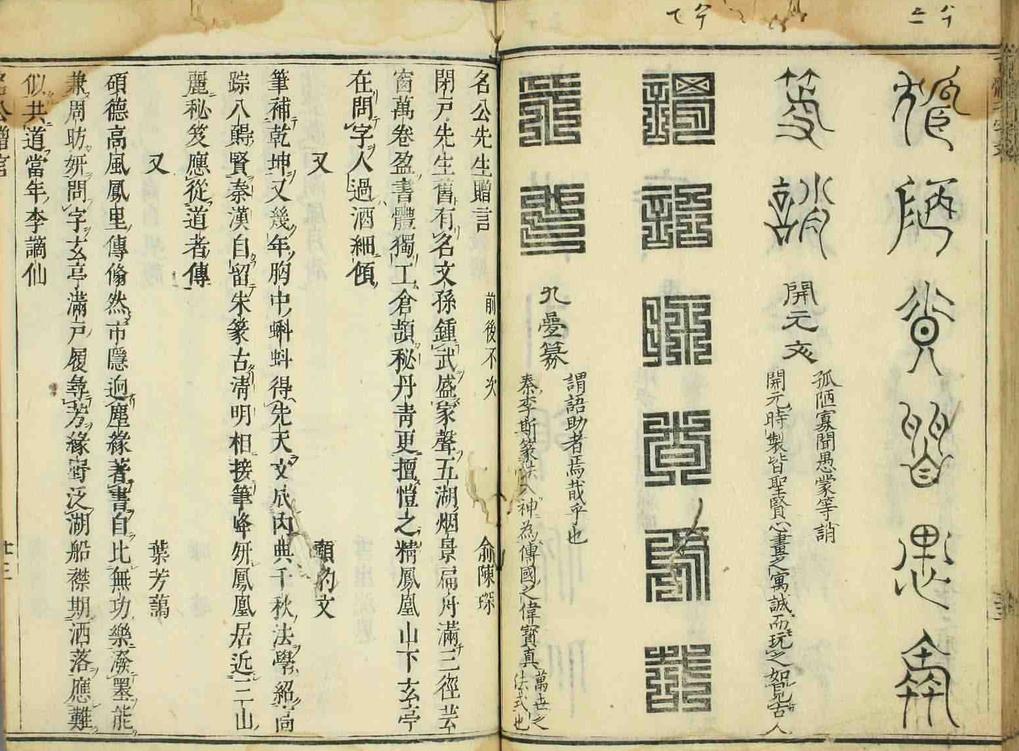 孤陋寡聞愚蒙
等誚 開元文
孤陋寡聞愚蒙等誚
開元時製皆聖賢心畫之寓誠而玩之如見古人
謂語助者焉哉
乎也 九疊篆
謂語助者焉哉乎也
秦李斯篆法入神為傳國之偉寶真萬世之法式也
名公先生贈言 前後不次 俞陳琛
閉戸先生舊有名文孫鍾武盛家聲五湖烟景扁舟滿三徑芸
窗萬卷盈書體獨工倉頡秘丹青更擅愷之精鳳凰山下玄亭
在問字人過酒細傾
又 顧文
筆補乾坤又幾年胸中蝌蚪得先天文成內典千秋法學紹高
踪八賢秦漢自留朱篆古清明相接筆峰妍鳳凰居近三山
麗秘笈應從道者傳
又 葉芳藹
碩德高風鳳里傳翛然市隱逈塵緣著書自比無功樂潑墨能
兼周昉妍問字玄亭滿戸履尋芳綠野泛湖船襟期洒落應難
似共道當年李謫仙
名公贈言